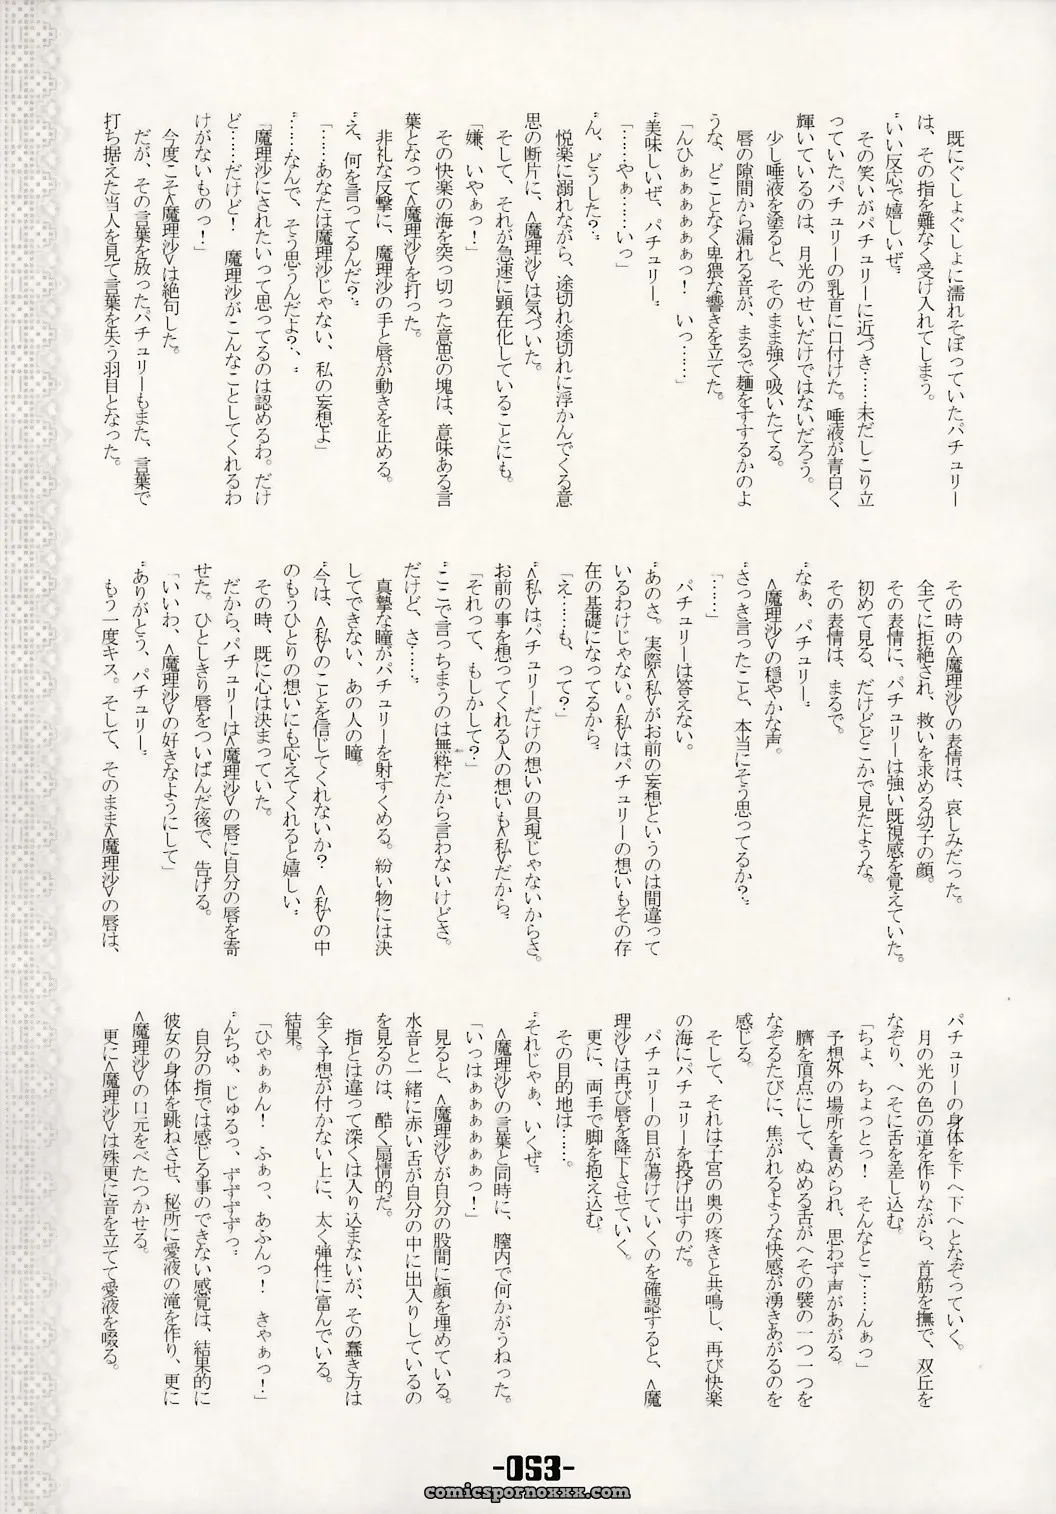 既にぐしょぐしょに濡れそぼっていたパチュリー
は、その指を難なく受け入れてしまう。
“いい反応で嬉しいぜ”
その笑いがパチュリーに近づき……未だしこり立
っていたパチュリーの乳首に口付けた。唾液が青白く
輝いているのは、月光のせいだけではないだろう。
少し唾液を塗ると、そのまま強く吸いたてる。
唇の隙間から漏れる音が、まるで麺をすするかのよ
うな、どことなく卑猥な響きを立てた。
「んひぁぁぁぁぁぁっ！　いっ……」
“美味しいぜ、パチュリー”
「……やぁ……いっ」
“ん、どうした？”
悦楽に溺れながら、途切れ途切れに浮かんでくる意
思の断片に、<魔理沙>は気づいた。
そして、それが急速に顕在化していることにも。
「嫌、いやぁっ！」
その快楽の海を突っ切った意思の塊は、意味ある言
葉となって<魔理沙>を打った。
非礼な反撃に、魔理沙の手と唇が動きを止める。
“え、何を言ってるんだ？”
「……あなたは魔理沙じゃない、私の妄想よ」
“……なんで、そう思うんだよ？”
「魔理沙にされたいって思ってるのは認めるわ。だけ
ど……だけど！　魔理沙がこんなことしてくれるわ
けがないものっ！」
今度こそ<魔理沙>は絶句した。
だが、その言葉を放ったパチュリーもまた、言葉で
打ち据えた当人を見て言葉を失う羽目となった。
その時の<魔理沙>の表情は、哀しみだった。
全てに拒絶され、救いを求める幼子の顔。
その表情に、パチュリーは強い既視感を覚えていた。
初めて見る、だけどどこかで見たような。
その表情は、まるで。
“なぁ、パチュリー”
<魔理沙>の穏やかな声。
“さっき言ったこと、本当にそう思ってるか？”
「……」
パチュリーは答えない。
“あのさ。実際<私>がお前の妄想というのは間違って
いるわけじゃない。<私>はパチュリーの想いもその存
在の基礎になってるから”
「え……も、って？」
“<私>はパチュリーだけの想いの具現じゃないからさ。
お前の事を想ってくれる人の想いも<私>だから”
「それって、もしかして？」
“ここで言っちまうのは無粋だから言わないけどさ。
だけど、さ……”
真摯な瞳がパチュリーを射すくめる。紛い物には決
してできない、あの人の瞳。
“今は、<私>のことを信じてくれないか？　<私>の中
のもうひとりの想いにも応えてくれると嬉しい”
その時、既に心は決まっていた。
だから、パチュリーは<魔理沙>の唇に自分の唇を寄
せた。ひとしきり唇をついばんだ後で、告げる。
「いいわ、<魔理沙>の好きなようにして」
“ありがとう、パチュリー”
もう一度キス。そして、そのまま<魔理沙>の唇は、
パチュリーの身体を下へ下へとなぞっていく。
月の光の色の道を作りながら、首筋を撫で、双丘を
なぞり、へそに舌を差し込む。
「ちょ、ちょっとっ！　そんなとこ……んぁっ」
予想外の場所を責められ、思わず声があがる。
臍を頂点にして、ぬめる舌がへその襞の一つ一つを
なぞるたびに、焦がれるような快感が湧きあがるのを
感じる。
そして、それは子宮の奥の疼きと共鳴し、再び快楽
の海にパチュリーを投げ出すのだ。
パチュリーの目が蕩けていくのを確認すると、<魔
理沙>は再び唇を降下させていく。
更に、両手で脚を抱え込む。
その目的地は……。
“それじゃぁ、いくぜ”
<魔理沙>の言葉と同時に、膣内で何かがうねった。
「いっはぁぁぁぁぁぁっ！」
見ると、<魔理沙>が自分の股間に顔を埋めている。
水音と一緒に赤い舌が自分の中に出入りしているの
を見るのは、酷く扇情的だ。
指とは違って深くは入り込まないが、その蠢き方は
全く予想が付かない上に、太く弾性に富んでいる。
結果。
「ひゃぁぁん！　ふぁっ、あふんっ！　きゃぁっ！」
“んちゅ、じゅるっ、ずずずずっ”
自分の指では感じる事のできない感覚は、結果的に
彼女の身体を跳ねさせ、秘所に愛液の滝を作り、更に
<魔理沙>の口元をべたつかせる。
更に<魔理沙>は殊更に音を立てて愛液を啜る。
-053-
comicspornoxxx.com